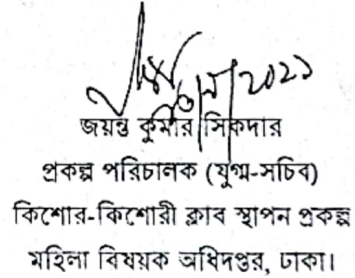 ২০২১
জয়ন্ত কুমার সিকদার
প্রকল্প পরিচালক (যুগ্ম-সচিব)
কিশোর-কিশোরী ক্লাব স্থাপন প্রকল্প
মহিলা বিষয়ক অধিদপ্তর, ঢাকা।